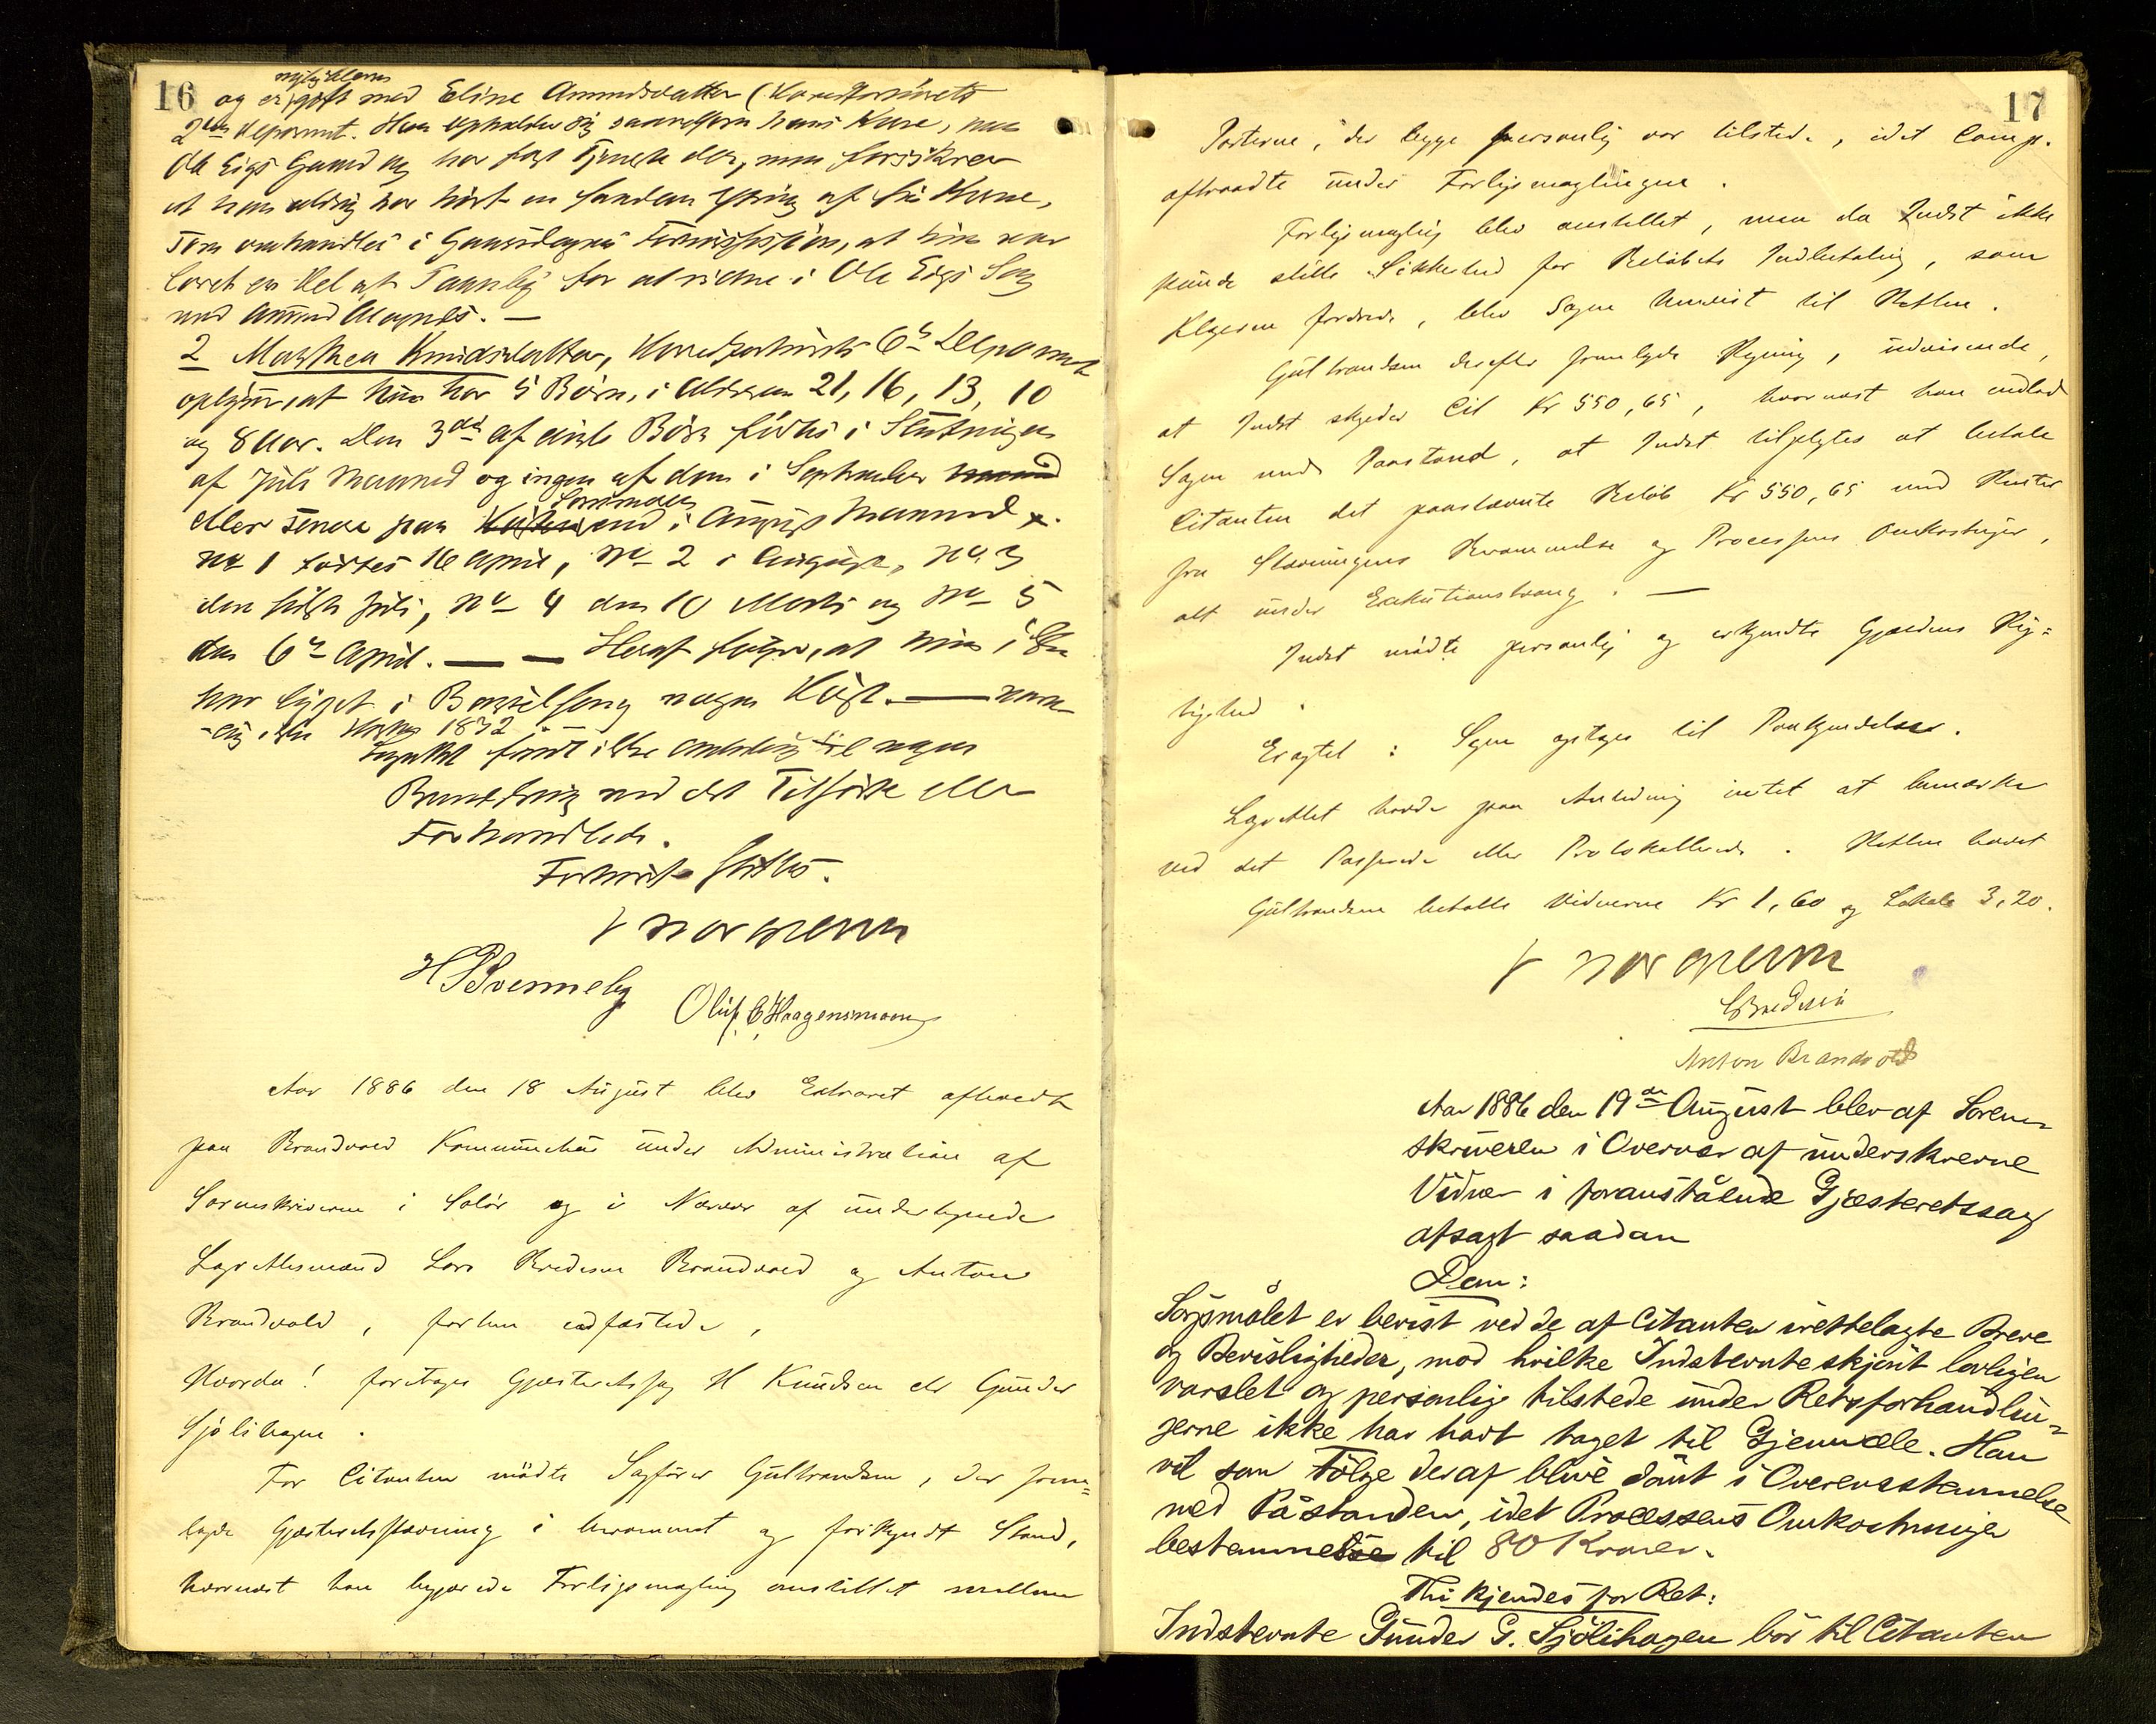 16
mylig Klemis
og er gift med Eline Amundsdatter (Hovedforhørets
2det Deponent. Han opholder sig saavelsom hans Kone, paa
Ole Eigs Gaard og har fast Tjeneste der, men forsikrer
at han aldrig har hørt en saadan Ytring af sin Kone,
som omhandles i Gaarsdagens Forhør, at hun var
lovet en Del af for at vidne i Ole Eigs Sag
mod Amund Magnæs. —
2 Mathea Knudsdatter, Hovedforhørets 6te Deponent
oplyser, at hun har 5 Børn, i Alderen 21, 16, 13, 10
og 8 Aar. Den 3die af disse Børn fødtes i Slutningen
af Juli Maaned og ingen af dem i September
eller senere paa end i August Maaned.
No 1 fødtes 16 April, No 2 i August, No 3
den sidste Juli, No 4 den 10 Marts og No 5
den 6te April. — — Heraf følger, at hun ikke
har ligget i Barselseng nogen Høst. — navn-
-lig ikke Høsten 1872. —
Lagrettet fandt ikke Anledning til nogen
Bemærkning ved det Tilførte eller
Forhandlede.
Forhøret sluttet.
H P Svenneby Oluf E Haagensmoen
Aar 1886 den 18 August blev Extraret afholdt
paa Brandvold Kommunehus under Administration af
Sorenskriveren i Solør og i Nærvær af undertegnede
Lagrettesmænd Lars Bredesen Brandvold og Anton
Brandvold, forhen edfæstede,
Hvorda! foretoges Gjæsteretssag H Knudsen ctr Gunder
Sjølihagen.
For Citanten mødte Sagfører Gulbrandsen, der frem-
lagde Gjæsteretsstævning i berammet og forkyndt Stand,
hvornæst han begjærede Forligsmægling anstillet mellem
17
Parterne, der begge personlig var tilstede, idet Comp.
aftraadte under Forligsmæglingen.
Forligsmægling blev anstillet, men da Indst ikke
kunde stille Sikkerhed for Beløbets Indbetaling, som
Klageren fordrede, blev Sagen henvist til Retten.
Gulbrandsen derefter fremlagde Regning, udvisende,
at Indst skylder Cit Kr 550,65, hvornæst han indlod
Sagen under Paastand, at Indst tilpligtes at betale
Citanten det paastævnte Beløb Kr 550,65 med Renter
fra Stævningens Berammelse og Processens Omkostninger,
alt under Exekutionstvang. —
Indst mødte personlig og erkjendte Gjældens Rig-
tighed.
Eragtet: Sagen optages til Paakjendelse.
Lagrettet havde paa Anledning intet at bemærke
ved det Passerede eller Protokollerede. Retten hævet
Gulbrandsen betalte Vidnerne Kr 1,60 og Lokale 3,20.
L Bredesen
Anton Brandvold
Aar 1886 den 19de August blev af Soren-
skriveren i Overvær af underskrevne
Vidner i foranstående Gjæsteretssag
afsagt saadan
Dom:
Søgsmålet er bevist ved de af Citanten irettelagte Breve
og Bevisligheder, mod hvilke Indstevnte skjønt lovligen
varslet og personlig tilstede under Retsforhandlin-
gerne ikke har havt noget til Gjenmæle. Han
vil som Følge deraf blive dømt i Overensstemmelse
med Påstanden, idet Processens Omkostninger
bestemmes til 80 Kroner.
Thi kjendes for Ret:
Indstevnte Gunder G. Sjölihagen bör til Citanten